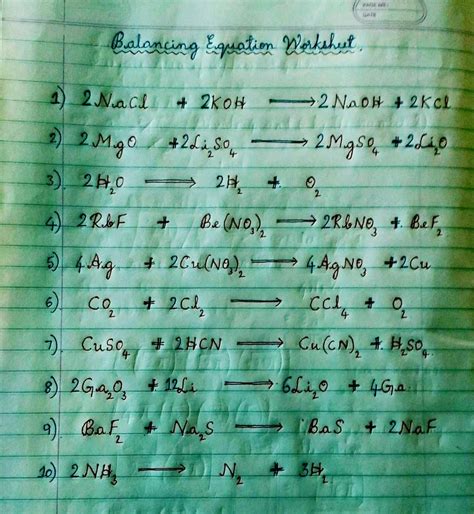 PAGE NO.:
DATE
Balancing Equation Worksheet.
1) 2NaCl + 2KOH ⟶ 2NaOH + 2KCl
2) 2MgO + 2Li₂SO₄ ⟶ 2MgSO₄ + 2Li₂O
3) 2H₂O ⟶ 2H₂ + O₂
4) 2RbF + Be(NO₃)₂ ⟶ 2RbNO₃ + BeF₂
5) 4Ag + 2Cu(NO₃)₂ ⟶ 4AgNO₃ + 2Cu
6) CO₂ + 2Cl₂ ⟶ CCl₄ + O₂
7) CuSO₄ + 2HCN ⟶ Cu(CN)₂ + H₂SO₄
8) 2Ga₂O₃ + 12Li ⟶ 6Li₂O + 4Ga
9) BaF₂ + Na₂S ⟶ BaS + 2NaF
10) 2NH₃ ⟶ N₂ + 3H₂